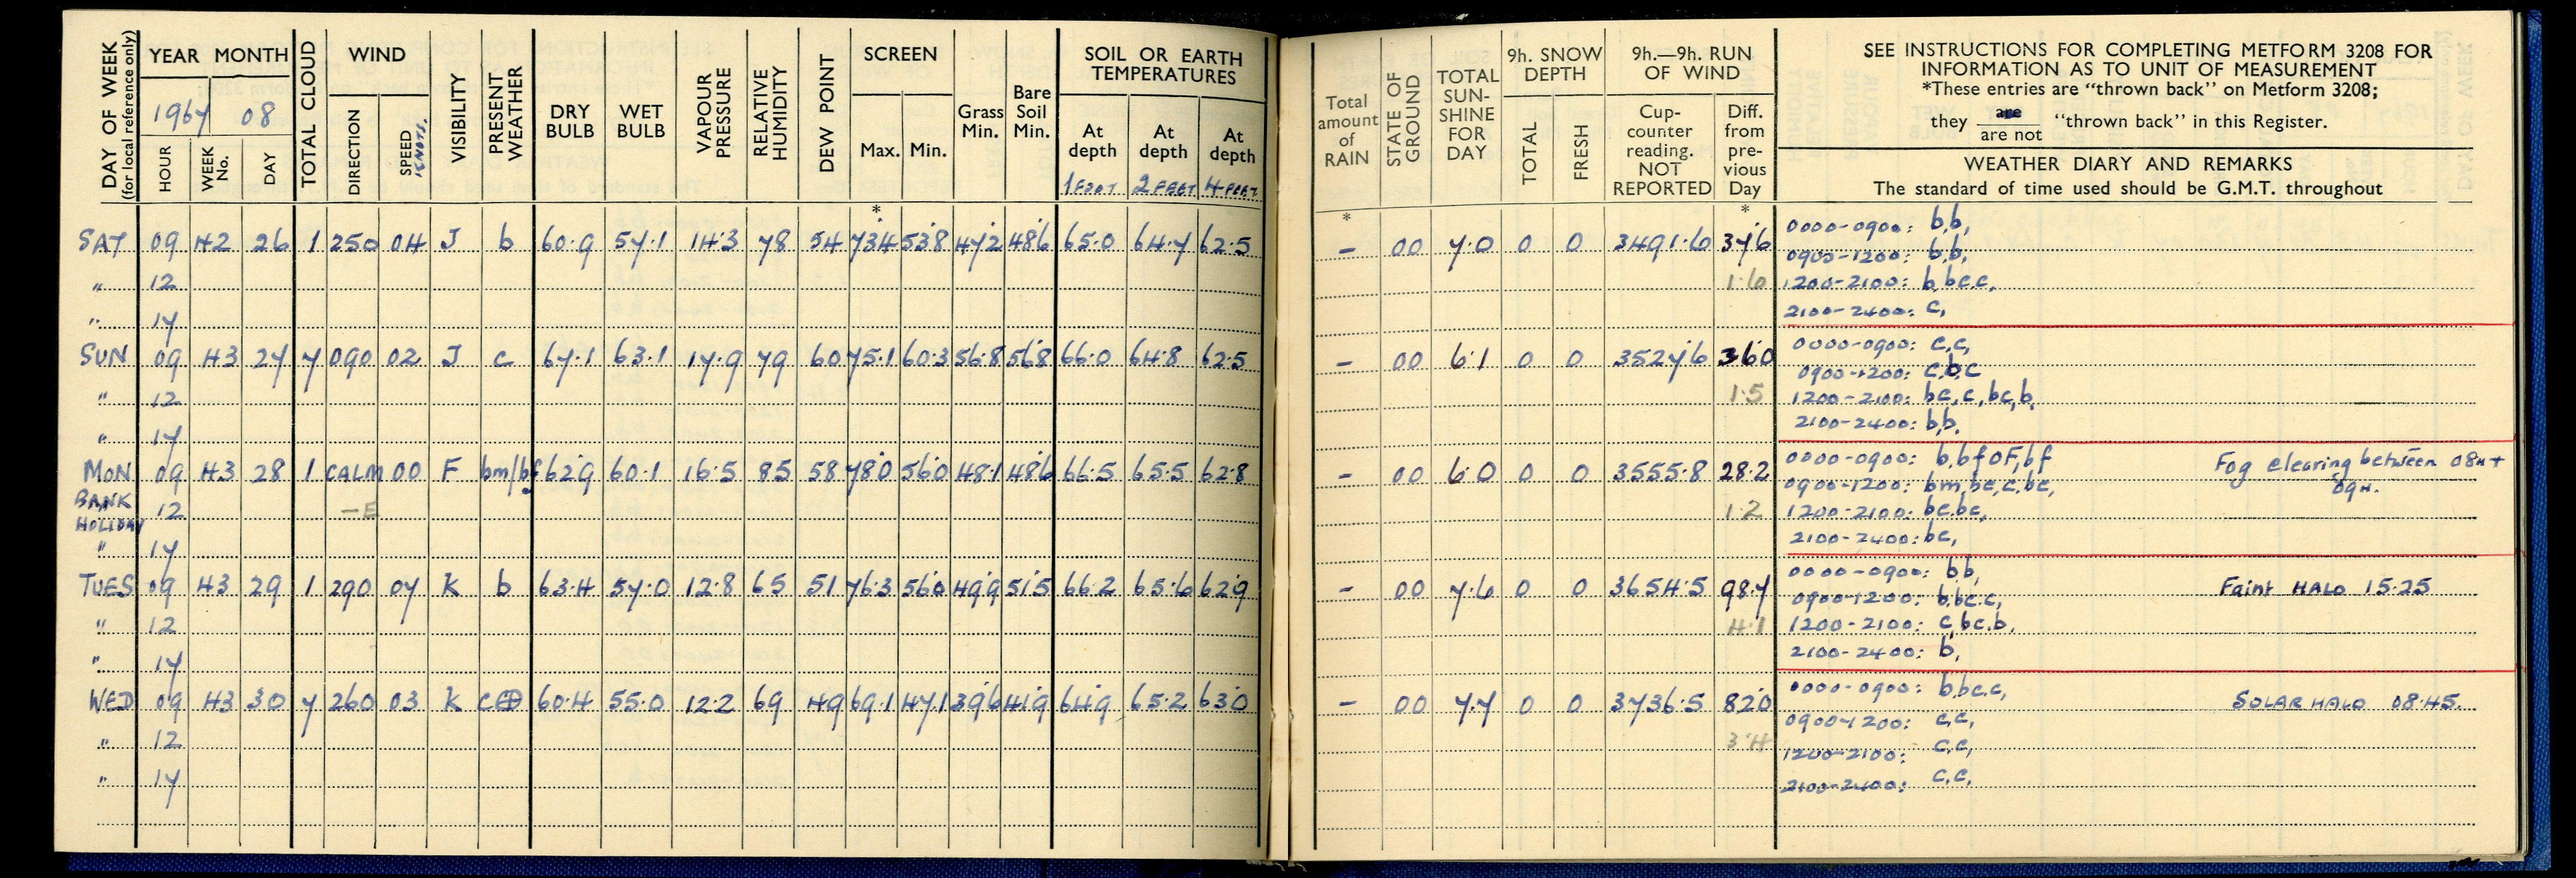 DAY OF WEEK
(for local reference only)
YEAR MONTH
1967 08
HOUR
WEEK No.
DAY
TOTAL CLOUD
WIND
DIRECTION
SPEED KNOTS.
VISIBILITY
PRESENT WEATHER
DRY BULB
WET BULB
VAPOUR PRESSURE
RELATIVE HUMIDITY
DEW POINT
SCREEN
Max. Min.
*
Grass Min.
Bare Soil Min.
SOIL OR EARTH TEMPERATURES
At depth 1 FOOT
At depth 2 FEET
At depth 4 FEET
SAT 09 42 26 1 250 04 J b 60.9 57.1 14.3 78 54 73.4 53.8 47.2 48.6 65.0 64.7 62.5
" 12
" 17
SUN 09 43 27 7 090 02 J c 67.1 63.1 17.9 79 60 75.1 60.3 56.8 56.8 66.0 64.8 62.5
" 12
" 17
MON 09 43 28 1 CALM 00 F bm/bf 62.9 60.1 16.5 85 58 78.0 56.0 48.1 48.6 66.5 65.5 62.8
BANK HOLIDAY 12 —E
" 17
TUES 09 43 29 1 290 07 K b 63.4 57.0 12.8 65 51 76.3 56.0 49.9 51.5 66.2 65.6 62.9
" 12
" 17
WED 09 43 30 7 260 03 K c⊕ 60.4 55.0 12.2 69 49 69.1 47.1 39.6 41.9 64.9 65.2 63.0
" 12
" 17
Total amount of RAIN
*
STATE OF GROUND
TOTAL SUN-SHINE FOR DAY
9h. SNOW DEPTH
TOTAL
FRESH
9h.—9h. RUN OF WIND
Cup-counter reading. NOT REPORTED
Diff. from pre-vious Day
*
SEE INSTRUCTIONS FOR COMPLETING METFORM 3208 FOR
INFORMATION AS TO UNIT OF MEASUREMENT
*These entries are "thrown back" on Metform 3208;
they are / are not "thrown back" in this Register.
WEATHER DIARY AND REMARKS
The standard of time used should be G.M.T. throughout
– 00 7.0 0 0 3491.6 37.6
1.6
0000-0900: b,b,
0900-1200: b,b,
1200-2100: b,bc,c,
2100-2400: c,
– 00 6.1 0 0 3527.6 36.0
1.5
0000-0900: c,c,
0900-1200: c,b,c
1200-2100: bc,c,bc,b,
2100-2400: b,b,
– 00 6.0 0 0 3555.8 28.2
1.2
0000-0900: b,bfoF,bf
0900-1200: bm,bc,c,bc,
1200-2100: bc,bc,
2100-2400: bc,
Fog clearing between 08H +
09H.
– 00 7.6 0 0 3654.5 98.7
4.1
0000-0900: b,b,
0900-1200: b,bc,c,
1200-2100: c,bc,b,
2100-2400: b,
Faint HALO 15.25
– 00 7.7 0 0 3736.5 82.0
3.4
0000-0900: b,bc,c,
0900-1200: c,c,
1200-2100: c,c,
2100-2400: c,c,
SOLAR HALO 08.45.